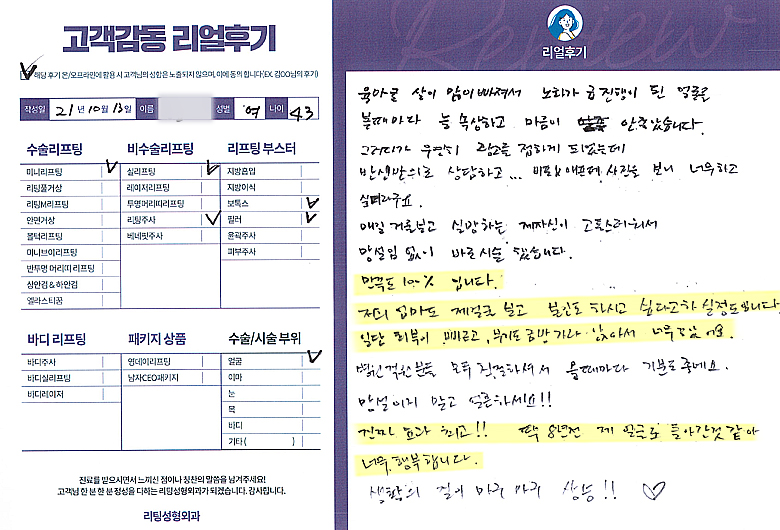 고객감동 리얼후기
해당 후기 온/오프라인에 활용 시 고객님의 성함은 노출되지 않으며, 이에 동의 합니다(EX. 김OO님의 후기)
작성일 21년 10월 13일 이름 성별 여 나이 43
수술리프팅
미니리프팅
리팅풀거상
리팅M리프팅
안면거상
볼턱리프팅
미니브이리프팅
반투명 머리띠 리프팅
상안검 & 하안검
엘라스티꿈
비수술리프팅
실리프팅
레이저리프팅
투명머리띠리프팅
리팅주사
베네핏주사
리프팅 부스터
지방흡입
지방이식
보톡스
필러
윤곽주사
피부주사
바디 리프팅
바디주사
바디실리프팅
바디레이저
패키지 상품
원데이리프팅
남자CEO패키지
수술/시술 부위
얼굴
이마
눈
목
바디
기타 ( )
진료를 받으시면서 느끼신 점이나 칭찬의 말씀을 남겨주세요!
고객님 한 분 한 분 정성을 다하는 리팅성형외과가 되겠습니다. 감사합니다.
리팅성형외과
Review
리얼후기
육아로 살이 많이 빠져서 노화가 급 진행이 된 얼굴을
볼때마다 늘 속상하고 마음이 안좋았습니다.
그러다가 우연히 광고를 접하게 되었는데
반신반의로 상담하고... 비포&애프터 사진을 보니 너무 하고
싶더라구요.
매일 거울보고 실망하는 제자신이 고통스러워서
망설임 없이 바로 시술 했습니다.
만족도 100% 입니다.
저희 엄마도 제얼굴 보고 본인도 하시고 싶다고 하실정도입니다.
일단 회복이 빠르고, 부기도 금방 가라 앉아서 너무 좋았어요.
병원 직원분들 모두 친절하셔서 올때마다 기분도 좋네요.
망설이지 말고 얼른하세요!!
진짜 효과 최고!! 딱 8년전 제 얼굴로 돌아간것 같아
너무 행복합니다.
생활의 질이 마구 마구 상승!! ♡